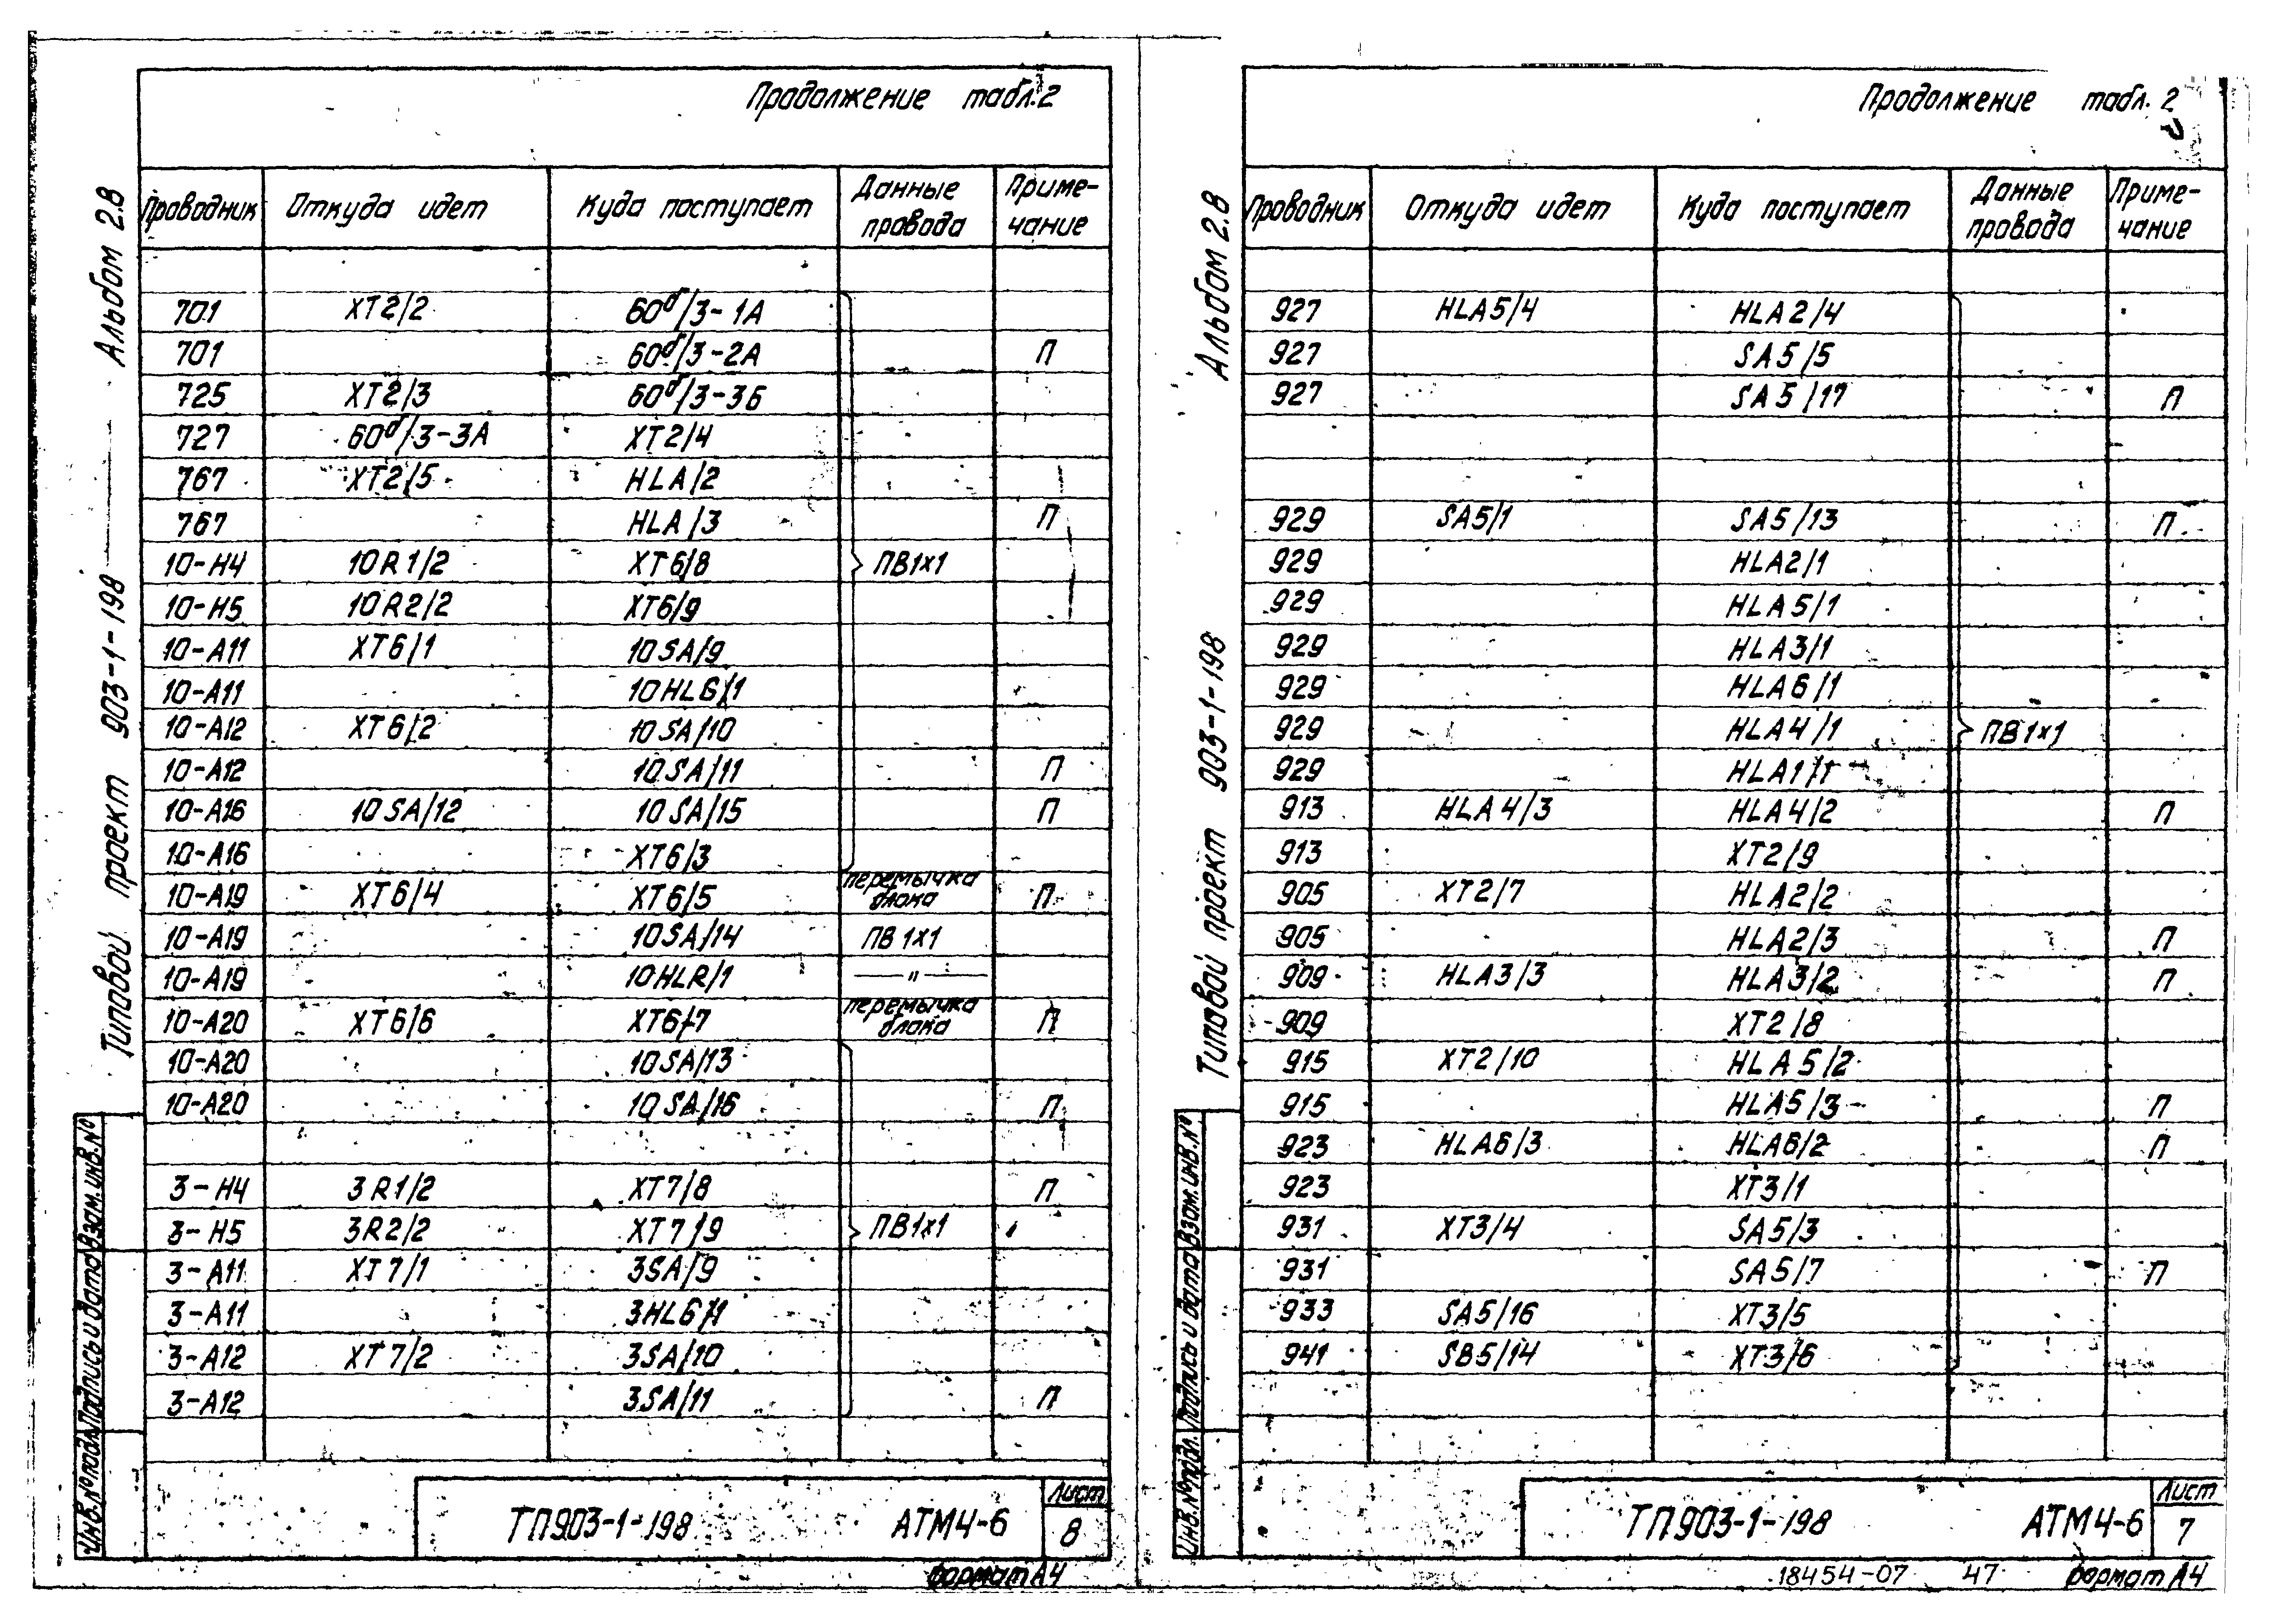 Продолжение табл.2
Проводник Откуда идет Куда поступает Данные провода Примечание
701 XT2/2 60б/3-1А
701 60б/3-2А П
725 XT2/3 60б/3-3Б
727 60б/3-3А XT2/4
767 XT2/5 HLA/2
767 HLA/3 П
10-Н4 10R1/2 XT6/8 ПВ1х1
10-Н5 10R2/2 XT6/9
10-А11 XT6/1 10SA/9
10-А11 10HLG/1
10-А12 XT6/2 10SA/10
10-А12 10SA/11 П
10-А16 10SA/12 10SA/15 П
10-А16 XT6/3
10-А19 XT6/4 XT6/5 перемычка блока П
10-А19 10SA/14 ПВ1х1
10-А19 10HLR/1 —"—
10-А20 XT6/6 XT6/7 перемычка блока П
10-А20 10SA/13
10-А20 10SA/16 П
3-Н4 3R1/2 XT7/8 П
3-Н5 3R2/2 XT7/9 ПВ1х1
3-А11 XT7/1 3SA/9
3-А11 3HLG/1
3-А12 XT7/2 3SA/10
3-А12 3SA/11 П
ТП903-1-198 АТМ4-6 Лист 8
формат А4
Типовой проект 903-1-198 Альбом 2.8
Инв.№подл. Подпись и дата Взам.инв.№
Продолжение табл. 2
Проводник Откуда идет Куда поступает Данные провода Примечание
927 HLA5/4 HLA2/4
927 SA5/5
927 SA5/17 П
929 SA5/1 SA5/13 П
929 HLA2/1
929 HLA5/1
929 HLA3/1
929 HLA6/1
929 HLA4/1 ПВ1х1
929 HLA1/1
913 HLA4/3 HLA4/2 П
913 XT2/9
905 XT2/7 HLA2/2
905 HLA2/3 П
909 HLA3/3 HLA3/2 П
909 XT2/8
915 XT2/10 HLA5/2
915 HLA5/3 П
923 HLA6/3 HLA6/2 П
923 XT3/1
931 XT3/4 SA5/3
931 SA5/7 П
933 SA5/16 XT3/5
941 SB5/14 XT3/6
ТП903-1-198 АТМ4-6 Лист 7
18454-07 47 формат А4
Типовой проект 903-1-198 Альбом 2.8
Инв.№подл. Подпись и дата Взам.инв.№